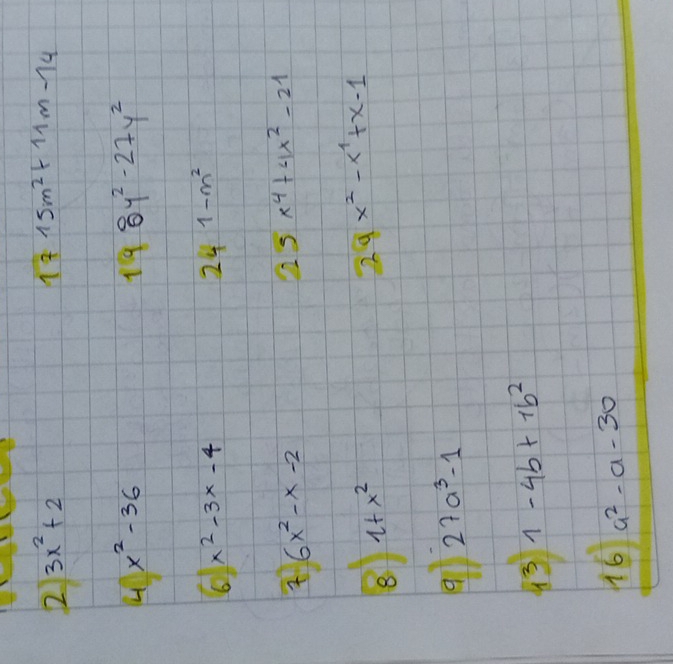 2) 3x² + 2
4) x² - 36
6) x² - 3x - 4
7) 6x² - x - 2
8) 1 + x²
9) 27a³ - 1
13) 1 - 4b + 1b²
16) a² - a - 30
17 15m² + 11m - 14
19 8y² - 27y²
24 1 - m²
25 x⁴ + 4x² - 21
29 x² - x¹ + x - 1